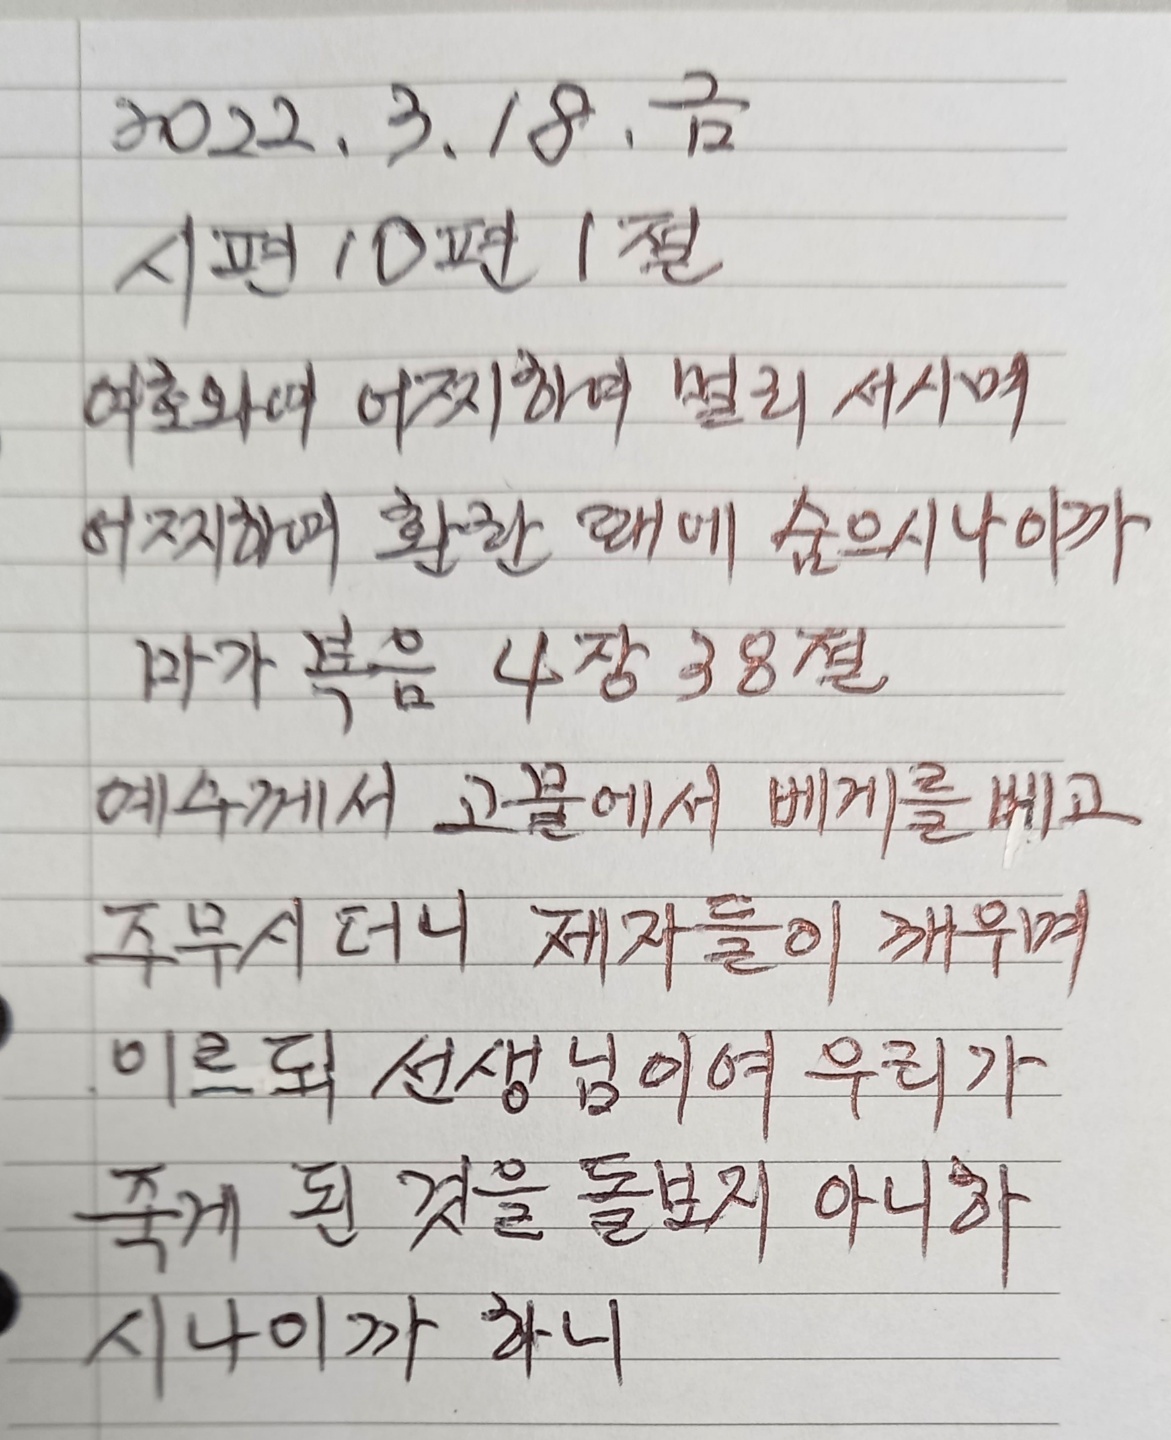 2022. 3. 18. 금
시편 10편 1절
여호와여 어찌하여 멀리 서시며
어찌하여 환란 때에 숨으시나이까
마가복음 4장 38절
예수께서 고물에서 베게를 베고
주무시더니 제자들이 깨우며
이르되 선생님이여 우리가
죽게 된 것을 돌보지 아니하
시나이까 하니